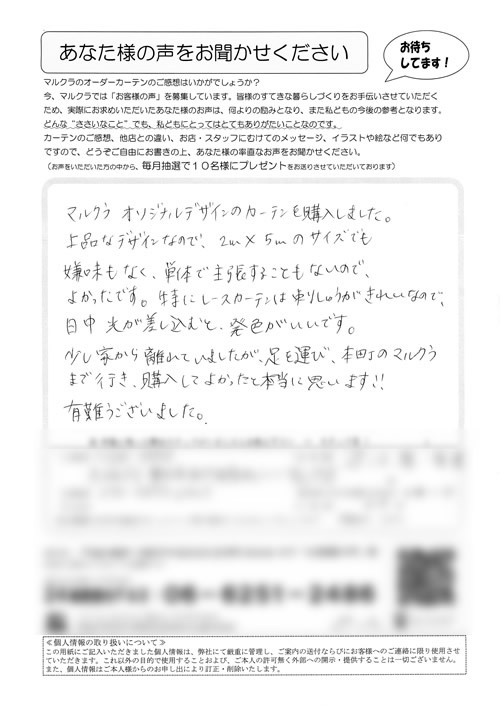 あなた様の声をお聞かせください
お待ち
してます！
マルクラのオーダーカーテンのご感想はいかがでしょうか？
今、マルクラでは「お客様の声」を募集しています。皆様のすてきな暮らしづくりをお手伝いさせていただく
ため、実際にお求めいただいたあなた様のお声は、何よりの励みとなり、また私どもの今後の参考となります。
どんな“ささいなこと”でも、私どもにとってはとてもありがたいことなのです。
カーテンのご感想、他店との違い、お店・スタッフにむけてのメッセージ、イラストや絵など何でもあり
ですので、どうぞご自由にお書きの上、あなた様の率直なお声をお聞かせください。
（お声をいただいた方の中から、毎月抽選で１０名様にプレゼントをお送りさせていただいております）
マルクラ オリジナルデザインのカーテンを購入しました。
上品なデザインなので、2m×5mのサイズでも
嫌味もなく、単体で主張することもないので、
よかったです。特にレースカーテンは刺しゅうがきれいなので、
日中 光が差し込むと、発色がいいです。
少し家から離れていましたが、足を運び、本田丁のマルクラ
まで行き、購入してよかったと本当に思います!!
有難うございました。
06-6251-2486
≪個人情報の取り扱いについて≫
この用紙にご記入いただきました個人情報は、弊社にて厳重に管理し、ご案内の送付ならびにお客様へのご連絡に限り使用させ
ていただきます。これ以外の目的で使用することおよび、ご本人の許可無く外部への開示・提供することは一切ございません。
また、個人情報はご本人様からのお申し出により訂正・削除いたします。